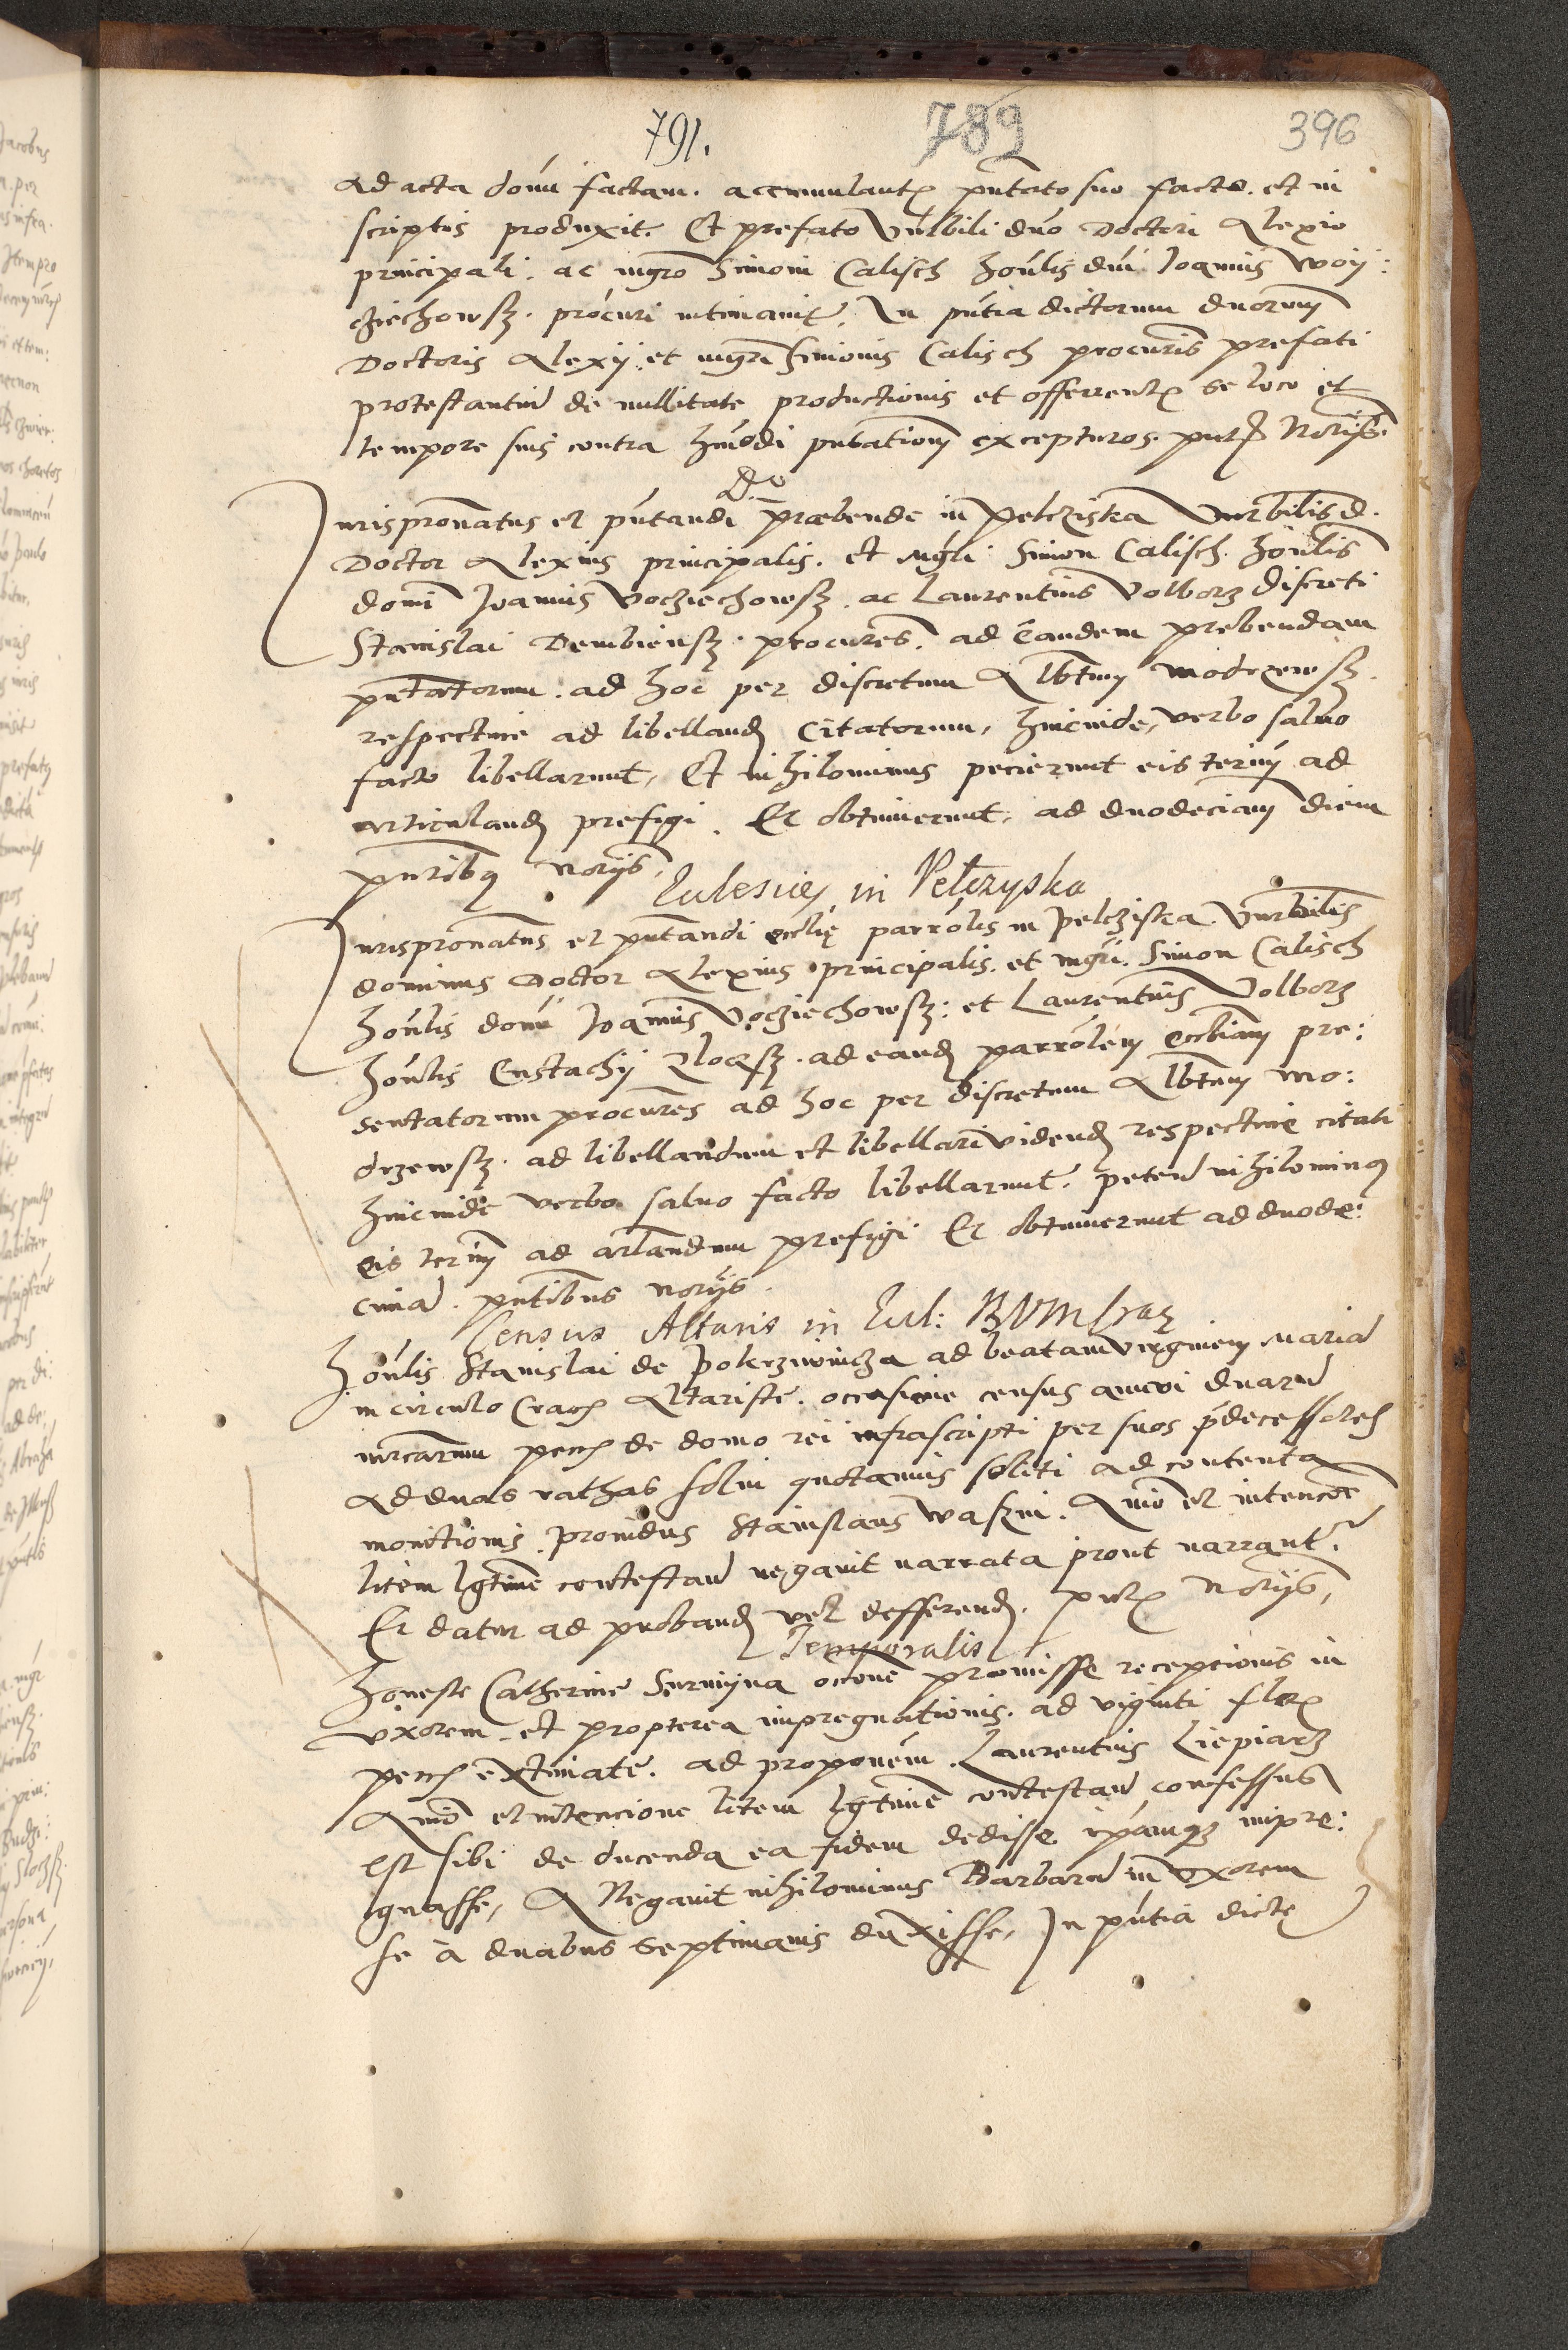 791. 789 396
ad acta domi factam. accumulantꝭ pntato suo facto. et in
scriptis produxit. Et prefato Vnrbili dno Doctori Alexio
principali. ac mgro Simoni Calisch honlis dni Joannis Woy:
cziechowsz. procuri intimavit. In pntia dictorum dnorum
Doctoris Alexij et mgri Simonis Calisch procuris prefati
protestantiu de nullitate productionis et offerrentꝭ se loco et
tempore suis contra hmodi pntationem excepturos. pntꝭ Norijs.
Do
Jurispronatus et pntandi præbende in Pelcziska Vnrbilis d.
Doctor Alexius principalis. et mgri Simon Calisch honlis
domi Joannis Vocziechowsz. ac Laurentius Volborz discreti
Stanislai Dembiensz. procures. ad eandem prebendam
pntatorum. ad hoc per discretum Albtum Modrzewsz.
respective ad libellandꝭ citatorum, hincinde, verbo salvo
facto libellarunt, Et nihilominus pecierunt eis terminum ad
articulandꝭ prefigi. Et obtinuerunt, ad duodecimam diem
pntibus norijs.
Eulesiæ in Pełczyska
Jurispronatus et pntandi ecclię parrolis in Pelcziska Vnrbilis
dominus Doctor Alexius principalis. et mgri. Simon Calisch
honlis domi Joannis Vocziechowsz: et Laurentius Volborz
honlis Eustachij Zloczsz. ad eandꝭ parrolem eccliam pre:
sentatorum procures ad hoc per discretum Albtum Mo:
drzewsz. ad libellandum et libellari videndꝭ respective citati
hincinde verbo salvo facto libellarunt. petend nihilominus
eis terminum ad artlandum prefigi Et obtinuerunt ad duode:
cima. pntibus norijs.
Census Altaris in Eccl: BVM Crac
Honlis Stanislai de Pokrzywnicza ad beatam virginem Maria
in circulo Cracꝭ Altariste. occasione census annui duaru
mrcarum pecꝭ de domo rei infrascripti per suos pdecessores
ad duas rathas solvi quotannis soliti ad contenta
monitionis. providus Stanislaus Waszni. Animo et intencoe
litem lgtime contestand negavit narrata prout narrant.
Et datur ad probandꝭ vel defferendꝭ. pntꝭ Norijs,
Temporalis
Honeste Catherine Surmyna occone promisse receptionis in
vxorem. et propterea impregnationis. ad viginti florꝭ
pecꝭ extimate. ad proponem. Laurentius Liepiarz
Animo et intencione litem lgtime contestand confessus
est sibi de ducenda ea fidem dedisse ipamqꝫ impre:
gnasse, A Negavit nihilominus Barbaram in vxorem
se a duabus septimanis duxisse, In pntia dictę